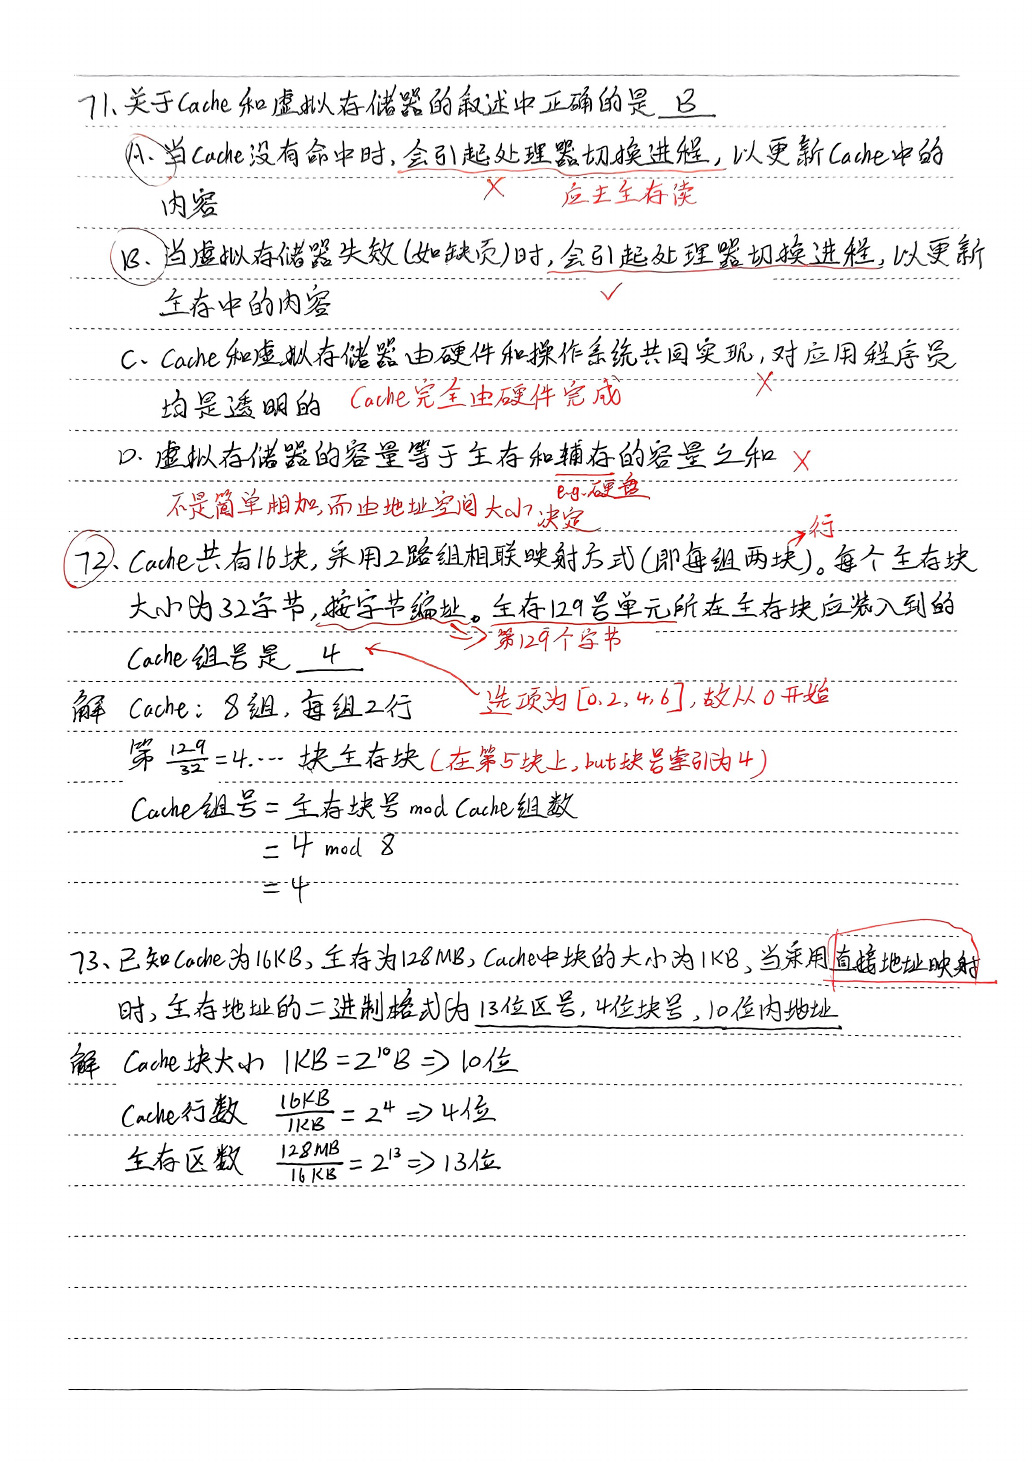 71、关于Cache和虚拟存储器的叙述中正确的是 B
A. 当Cache没有命中时，会引起处理器切换进程，以更新Cache中的
× 应去主存读
内容
B. 当虚拟存储器失效(如缺页)时，会引起处理器切换进程，以更新
✓
主存中的内容
C. Cache和虚拟存储器由硬件和操作系统共同实现，对应用程序员
×
均是透明的 Cache完全由硬件完成
D. 虚拟存储器的容量等于主存和辅存的容量之和 ×
e.g.硬盘
不是简单相加，而由地址空间大小决定
行
72、Cache共有16块，采用2路组相联映射方式(即每组两块)。每个主存块
大小为32字节，按字节编址。主存129号单元所在主存块应装入到的
=> 第129个字节
Cache组号是 4
选项为[0,2,4,6]，故从0开始
解 Cache：8组，每组2行
第 129/32 = 4.… 块主存块 (在第5块上，but块号索引为4)
Cache组号 = 主存块号 mod Cache组数
= 4 mod 8
= 4
73、已知Cache为16KB，主存为128MB，Cache中块的大小为1KB，当采用直接地址映射
时，主存地址的二进制格式为 13位区号，4位块号，10位内地址
解 Cache块大小 1KB = 2¹⁰B => 10位
Cache行数 16KB/1KB = 2⁴ => 4位
主存区数 128MB/16KB = 2¹³ => 13位